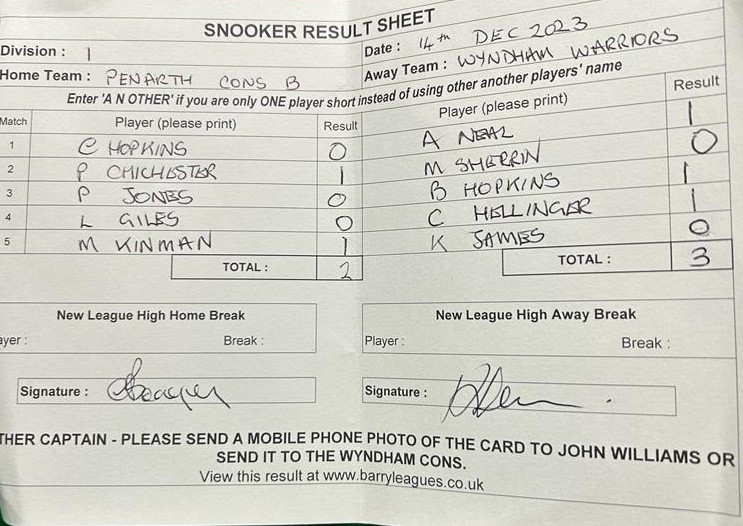 SNOOKER RESULT SHEET
Division : 1 Date : 14th DEC 2023
Home Team : PENARTH CONS B Away Team : WYNDHAM WARRIORS
Enter 'A N OTHER' if you are only ONE player short instead of using other another players' name
Match Player (please print) Result Player (please print) Result
1 C HOPKINS 0 A NEAL 1
2 P CHICHESTER 1 M SHERRIN 0
3 P JONES 0 B HOPKINS 1
4 L GILES 0 C HELLINGER 1
5 M KINMAN 1 K JAMES 0
TOTAL : 2 TOTAL : 3
New League High Home Break New League High Away Break
ayer : Break : Player : Break :
Signature : Signature :
THER CAPTAIN - PLEASE SEND A MOBILE PHONE PHOTO OF THE CARD TO JOHN WILLIAMS OR
SEND IT TO THE WYNDHAM CONS.
View this result at www.barryleagues.co.uk